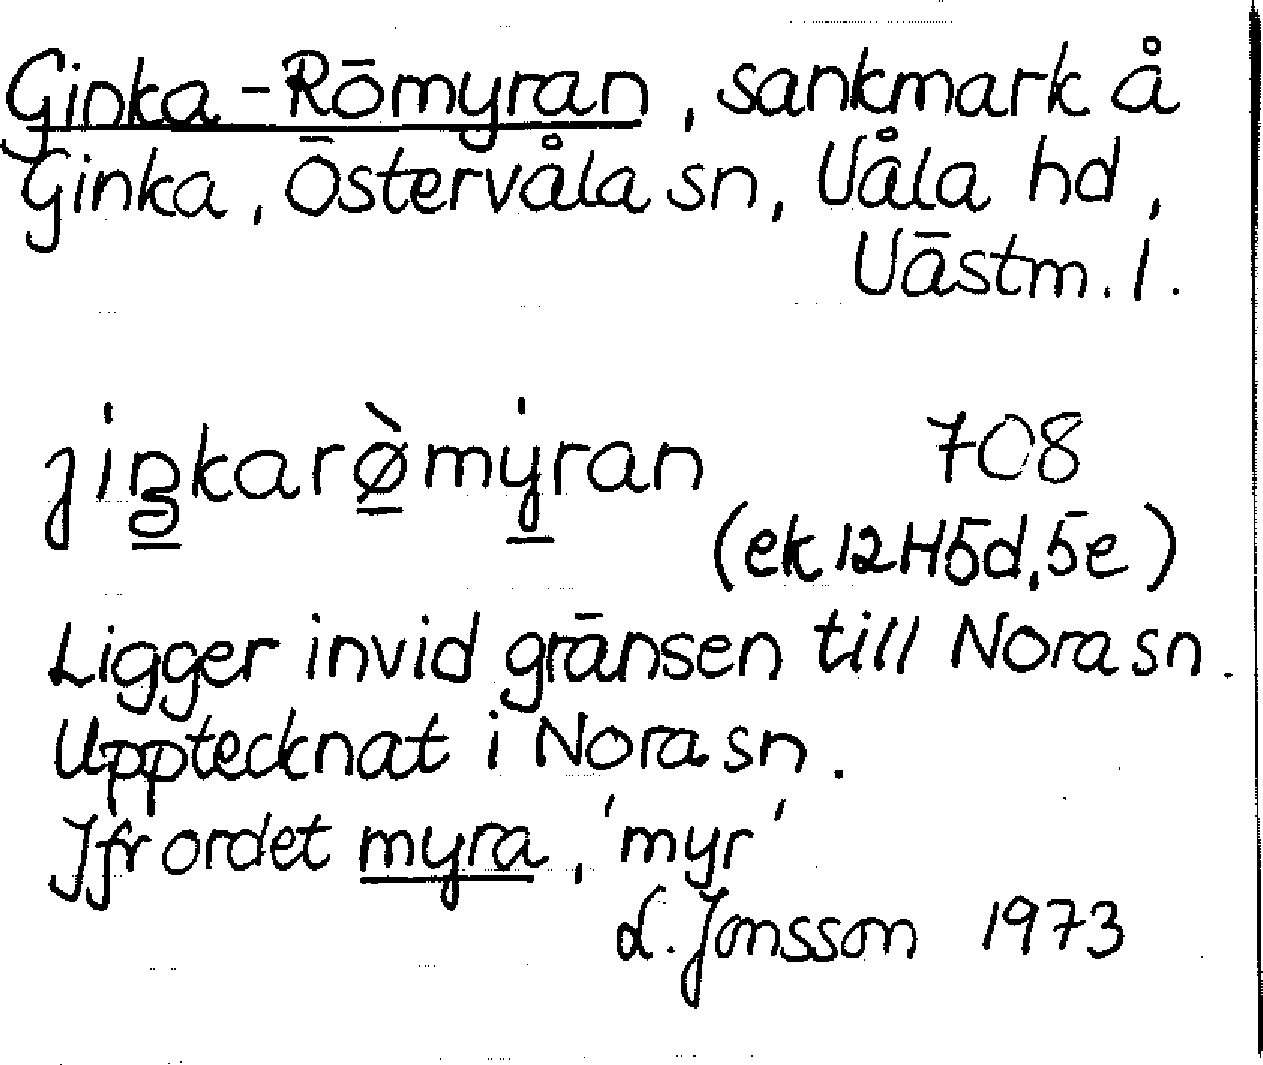 Ginka-Römyran, sankmark å
Ginka, Östervåla sn, Våla hd,
Västm. l.
jiŋkarø̀myran 708
(ek 12H5d,5e)
Ligger invid gränsen till Nora sn.
Upptecknat i Nora sn.
Jfr ordet myra, 'myr'
L. Jonsson 1973